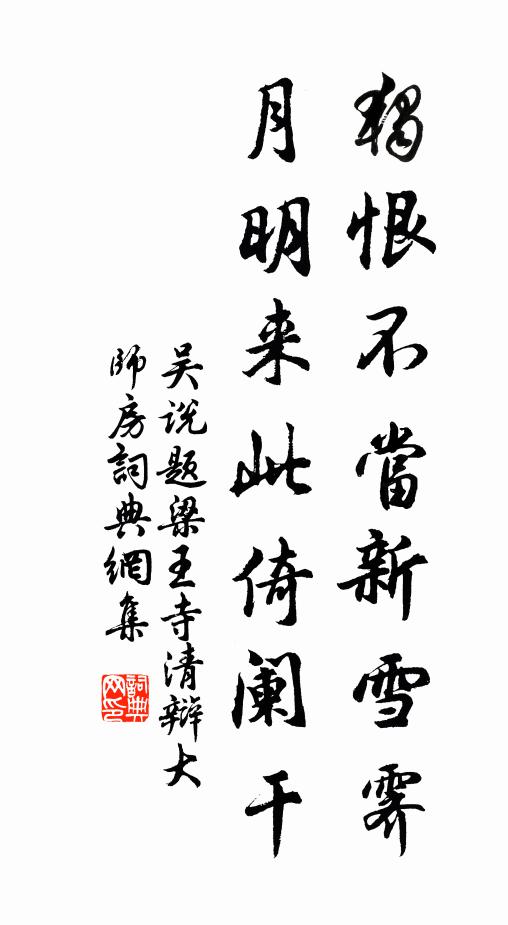 獨恨不當新雪霽
月明来此倚阑干
吴说题梁王寺清辩大
師房詞典網集
詞典網印